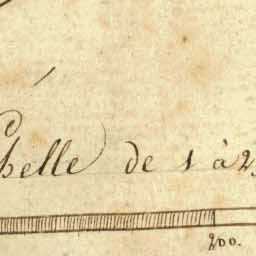 helle de 1 à 2
200.